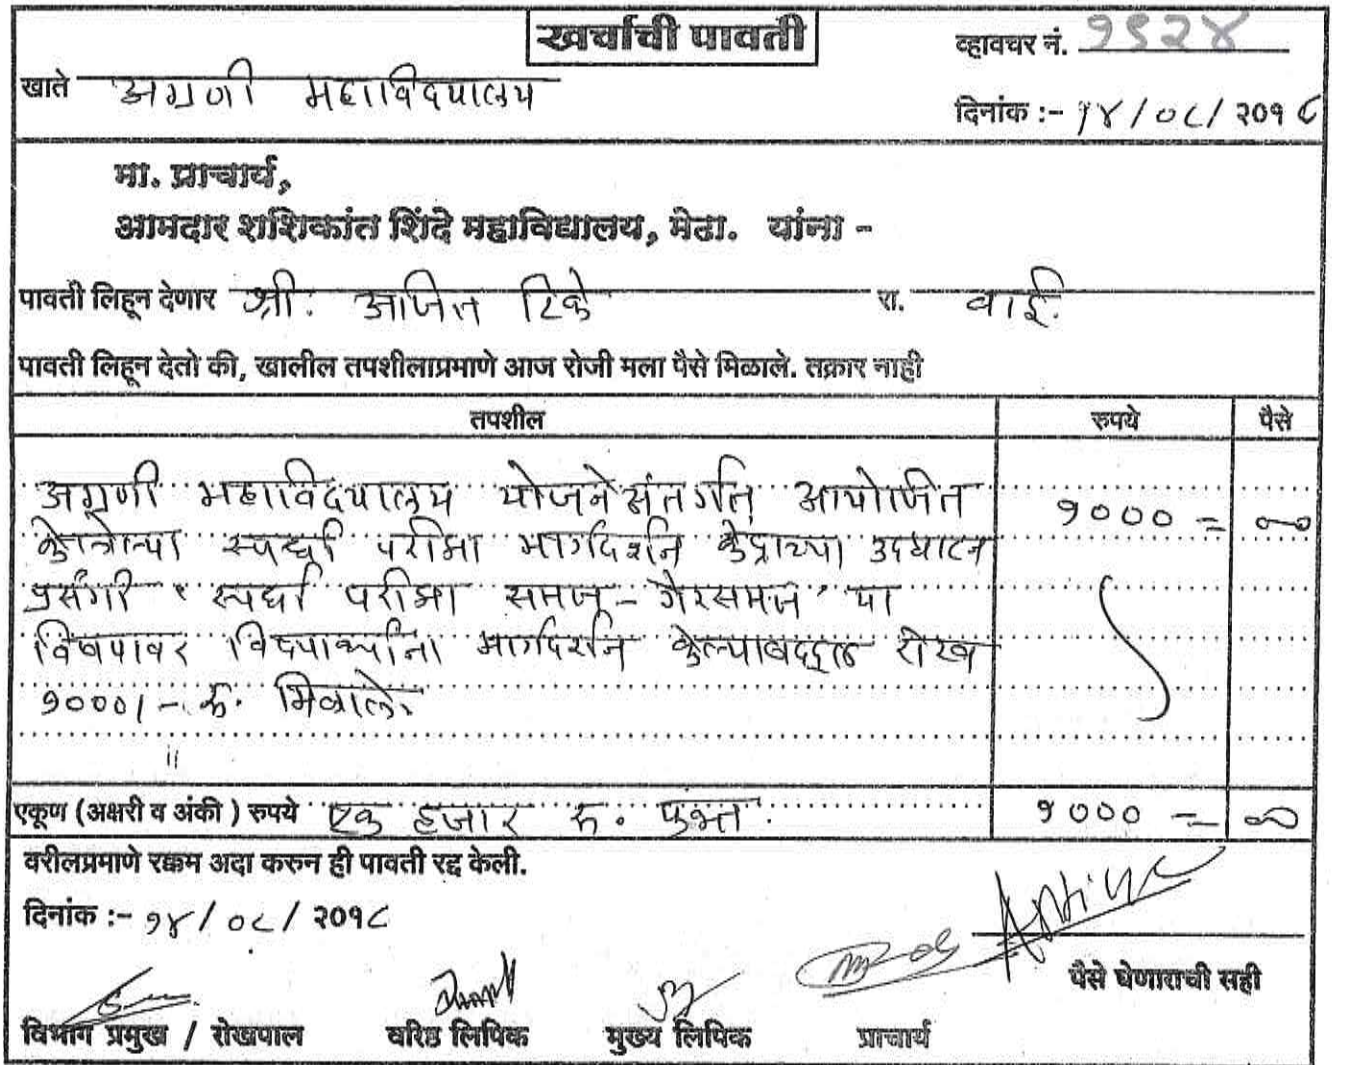 खर्चाची पावती
व्हावचर नं. १९२४
खाते अग्रणी महाविद्यालय
दिनांक :- १४/०८/२०१८
मा. प्राचार्य,
आमदार शशिकांत शिंदे महाविद्यालय, मेढा. यांना -
पावती लिहून देणार श्री. अजित टिके रा. वाई.
पावती लिहून देतो की, खालील तपशीलाप्रमाणे आज रोजी मला पैसे मिळाले. तक्रार नाही
तपशील रुपये पैसे
अग्रणी महाविद्यालय योजनेअंतर्गत आयोजित १०००=००
केलेल्या स्पर्धा परीक्षा मार्गदर्शन केंद्राच्या उद्घाटन
प्रसंगी 'स्पर्धा परीक्षा समज - गैरसमज' या
विषयावर विद्यार्थ्यांना मार्गदर्शन केल्याबद्दल रोख
१०००/- रु. मिळाले.
एकूण (अक्षरी व अंकी ) रुपये एक हजार रु. फक्त. १०००=००
वरीलप्रमाणे रक्कम अदा करुन ही पावती रद्द केली.
दिनांक :- १४/०८/२०१८
पैसे घेणाराची सही
विभाग प्रमुख / रोखपाल वरिष्ठ लिपिक मुख्य लिपिक प्राचार्य